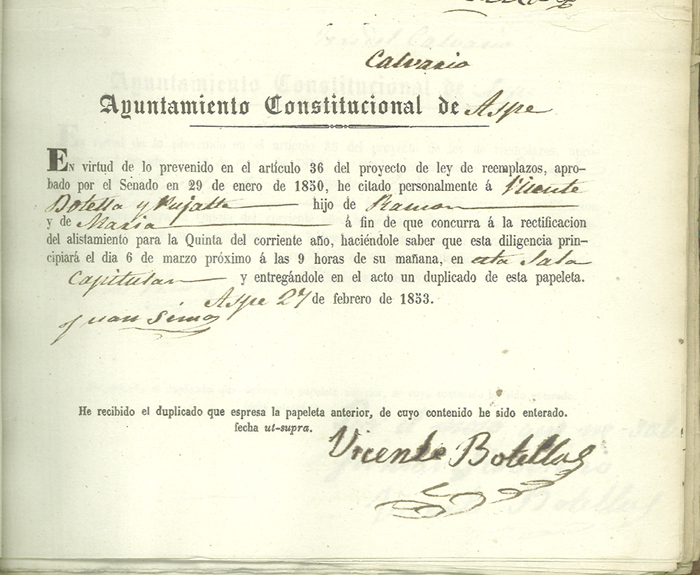 Calvario
Ayuntamiento Constitucional de Aspe
EN virtud de lo prevenido en el artículo 36 del proyecto de ley de reemplazos, apro-
bado por el Senado en 29 de enero de 1850, he citado personalmente á Vicente
Botella y Pujalte hijo de Ramon
y de Maria á fin de que concurra á la rectificacion
del alistamiento para la Quinta del corriente año, haciéndole saber que esta diligencia prin-
cipiará el dia 6 de marzo próximo á las 9 horas de su mañana, en esta Sala
Capitular y entregándole en el acto un duplicado de esta papeleta.
Aspe 27 de febrero de 1853.
Juan Simo
He recibido el duplicado que espresa la papeleta anterior, de cuyo contenido he sido enterado.
fecha ut-supra.
Vicente Botella